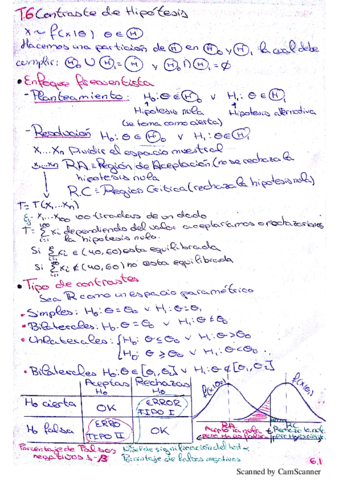 T6 Contraste de Hipótesis
X ~ f(x|θ) θ∈Ⓗ
Hacemos una partición de Ⓗ en Ⓗ₀ y Ⓗ₁, la cual debe
cumplir: Ⓗ₀ ∪ Ⓗ₁ = Ⓗ y Ⓗ₀ ∩ Ⓗ₁ = ∅
• Enfoque frecuentista
- Planteamiento: H₀: θ∈Ⓗ₀ v H₁: θ∈Ⓗ₁
Hipotesis nula Hipotesis alternativa
(se toma como cierta)
- Resolución H₀: θ∈Ⓗ₀ v H₁: θ∈Ⓗ₁
X₁...Xₙ Dividir el espacio muestral
X₁...Xₙ R.A = Región de Aceptación (no se rechaza la
hipotesis nula
R.C = Region Critica (rechaza la hipotesis nula)
T = T(X₁...Xₙ)
X₁...X₁₀₀ 100 tiradas de un dado
T = Σ xᵢ dependiendo del valor aceptaríamos o rechazaríamos
la hipotesis nula.
Si Σ xᵢ ∈ (40,60) esta equilibrada
Si Σ xᵢ ∉ (40,60) no esta equilibrada
• Tipo de contrastes
Sea ℝ como un espacio parametrico
- Simples: H₀: θ=θ₀ v H₁: θ=θ₁
- Bilaterales: H₀: θ=θ₀ v H₁: θ≠θ₀
- Unilaterales: H₀: θ≤θ₀ v H₁: θ>θ₀
H₀: θ≥θ₀ v H₁: θ<θ₀
• Bilaterales H₀: θ∈[θ₁,θ₂] v H₁: θ∉[θ₁,θ₂]
Aceptas H₀ Rechazas H₀
H₀ cierta OK ERROR TIPO I
H₀ falsa ERRO TIPO II OK
f(x|θ₀) f(x|θ₁)
RA RC
Porcentaje de Falsos
negativos
Porcentaje de falsos negativos
6.1
Scanned by CamScanner